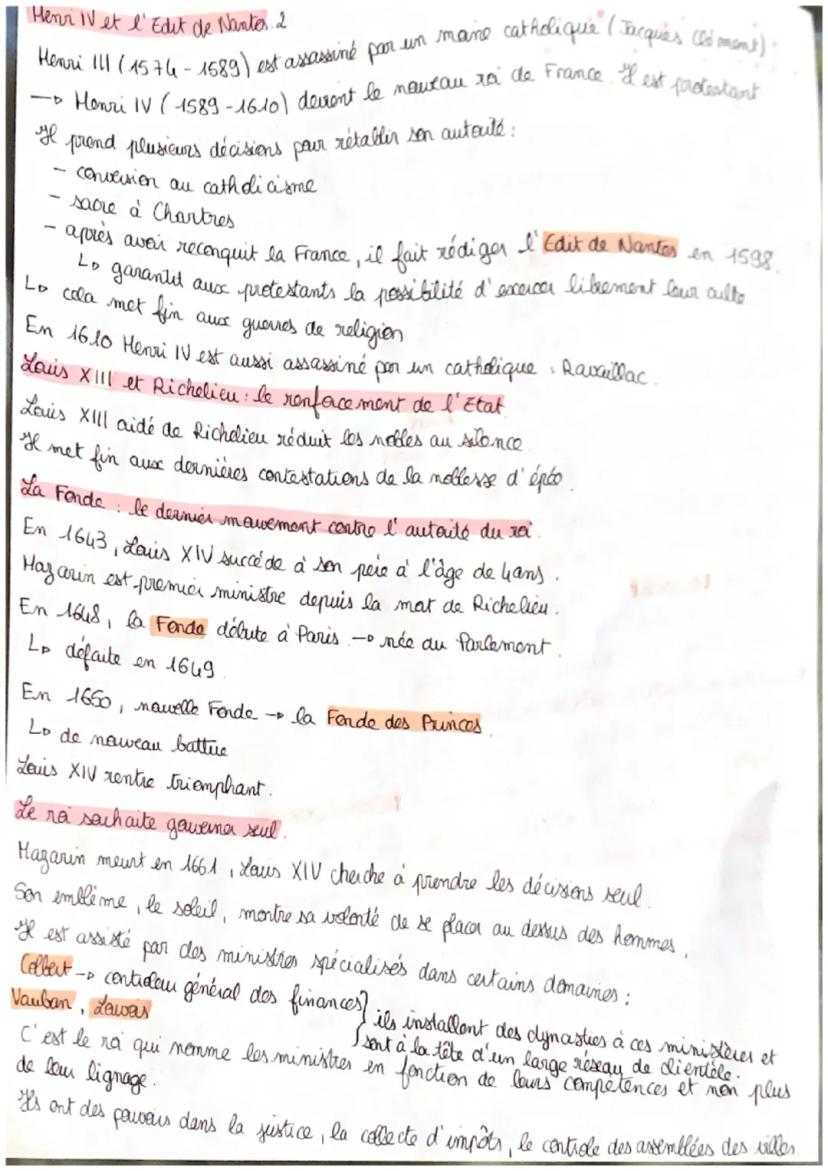 Henri IV et l'Edit de Nantes. 2
Henri III (1574 - 1589) est assassiné par un moine catholique (Jacques Clément).
→ Henri IV (1589 - 1610) devient le nouveau roi de France. Il est protestant
Il prend plusieurs décisions pour rétablir son autorité :
- conversion au catholicisme
- sacre à Chartres
- après avoir reconquit la France, il fait rédiger l'Edit de Nantes en 1598.
↳ garantit aux protestants la possibilité d'exercer librement leur culte
↳ cela met fin aux guerres de religion
En 1610 Henri IV est aussi assassiné par un catholique : Ravaillac.
Louis XIII et Richelieu : le renforcement de l'Etat
Louis XIII aidé de Richelieu réduit les nobles au silence.
Il met fin aux dernières contestations de la noblesse d'épée.
La Fonde : le dernier mouvement contre l'autorité du roi.
En 1643, Louis XIV succéde à son père à l'âge de 4ans.
Mazarin est premier ministre depuis la mort de Richelieu.
En 1648, la Fonde débute à Paris → née du Parlement.
↳ défaite en 1649.
En 1650, nouvelle Fonde → la Fonde des Princes.
↳ de nouveau battue
Louis XIV rentre triomphant.
Le roi souhaite gouverner seul.
Mazarin meurt en 1661, Louis XIV cherche à prendre les décisions seul.
Son emblème, le soleil, montre sa volonté de se placer au dessus des hommes.
Il est assisté par des ministres spécialisés dans certains domaines :
Colbert → controleur général des finances
Vauban, Louvois
} ils installent des dynasties à ces ministères et
sont à la tête d'un large réseau de clientèle.
C'est le roi qui nomme les ministres en fonction de leurs compétences et non plus
de leur lignage.
Ils ont des pouvoirs dans la justice, la collecte d'impôts, le controle des assemblées des villes.